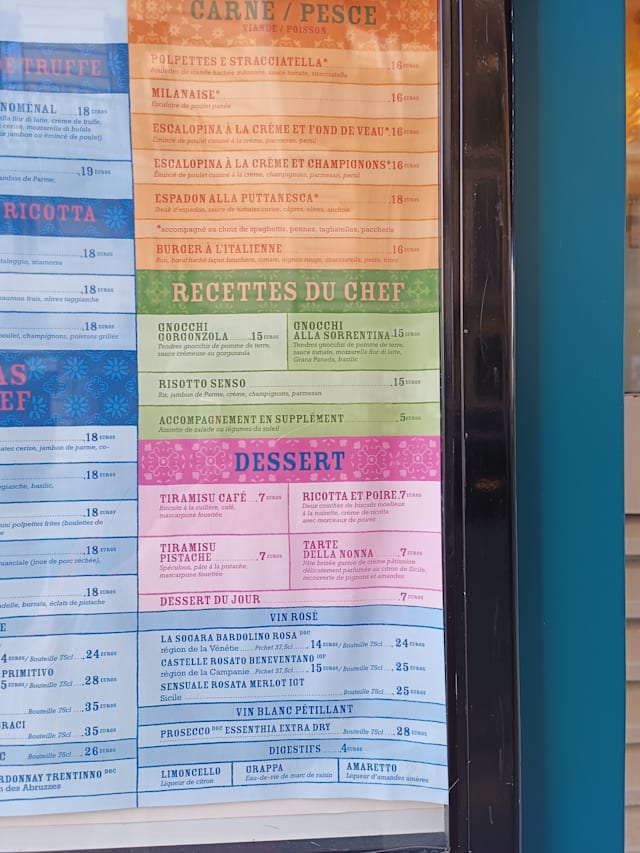 E TRUFFE
NOMÉNAL 18 EUROS
lla fior di latte, crème de truffe,
cerise, mozzarella di bufala
ix jambon ou émincé de poulet)
19 EUROS
ambon de Parme,
RICOTTA
18 EUROS
taleggio, scamorza
18 EUROS
saumon frais, olives taggiasche
18 EUROS
poulet, champignons, poivrons grillés
AS
EF
18 EUROS
ates cerise, jambon de parme, co-
18 EUROS
ggiasche, basilic,
18 EUROS
mini polpettes frites (boulettes de
18 EUROS
uanciale (joue de porc séchée),
18 EUROS
delle, burrata, éclats de pistache
E
4 EUROS/Bouteille 75cl 24 EUROS
PRIMITIVO
5 EUROS/Bouteille 75cl 28 EUROS
Bouteille 75cl 35 EUROS
RACI
Bouteille 75cl 35 EUROS
C Bouteille 75cl 26 EUROS
RDONNAY TRENTINNO DOC
n des Abruzzes
CARNE / PESCE
VIANDE / POISSON
POLPETTES E STRACCIATELLA* 16 EUROS
Boulettes de viande hachée mitonnée, sauce tomate, stracciatella
MILANAISE* 16 EUROS
Escalope de poulet panée
ESCALOPINA À LA CRÈME ET FOND DE VEAU* 16 EUROS
Émincé de poulet cuisiné à la crème, parmesan, persil
ESCALOPINA À LA CRÈME ET CHAMPIGNONS* 16 EUROS
Émincé de poulet cuisiné à la crème, champignons, parmesan, persil
ESPADON ALLA PUTTANESCA* 18 EUROS
Steak d'espadon, sauce de tomates cerise, câpres, olives, anchois
*accompagné au choix de spaghettis, pennes, tagliatelles, paccheris
BURGER À L'ITALIENNE 16 EUROS
Bun, bœuf haché façon bouchère, tomate, oignon rouge, stracciatella, pesto, frites
RECETTES DU CHEF
GNOCCHI
GORGONZOLA 15 EUROS
Tendres gnocchis de pomme de terre,
sauce crémeuse au gorgonzola
GNOCCHI
ALLA SORRENTINA 15 EUROS
Tendres gnocchis de pomme de terre,
sauce tomate, mozzarella fior di latte,
Grana Panada, basilic
RISOTTO SENSO 15 EUROS
Riz, jambon de Parme, crème, champignons, parmesan
ACCOMPAGNEMENT EN SUPPLÉMENT 5 EUROS
Assiette de salade ou légumes du soleil
DESSERT
TIRAMISU CAFÉ 7 EUROS
Biscuits à la cuillère, café,
mascarpone fouettée
RICOTTA ET POIRE 7 EUROS
Deux couches de biscuits moelleux
à la noisette, crème de ricotta
avec morceaux de poires
TIRAMISU
PISTACHE 7 EUROS
Spéculoos, pâte à la pistache,
mascarpone fouettée
TARTE
DELLA NONNA 7 EUROS
Pâte brisée garnie de crème pâtissière
délicatement parfumée au citron de Sicile,
recouverte de pignons et amandes
DESSERT DU JOUR 7 EUROS
VIN ROSÉ
LA SOGARA BARDOLINO ROSA DOC
région de la Vénétie Pichet 37,5cl 14 EUROS/Bouteille 75cl 24 EUROS
CASTELLE ROSATO BENEVENTANO IGP
région de la Campanie Pichet 37,5cl 15 EUROS/Bouteille 75cl 25 EUROS
SENSUALE ROSATA MERLOT IGT
Sicile Bouteille 75cl 25 EUROS
VIN BLANC PÉTILLANT
PROSECCO DOC ESSENTHIA EXTRA DRY Bouteille 75cl 28 EUROS
DIGESTIFS 4 EUROS
LIMONCELLO
Liqueur de citron
GRAPPA
Eau-de-vie de marc de raisin
AMARETTO
Liqueur d'amandes amères